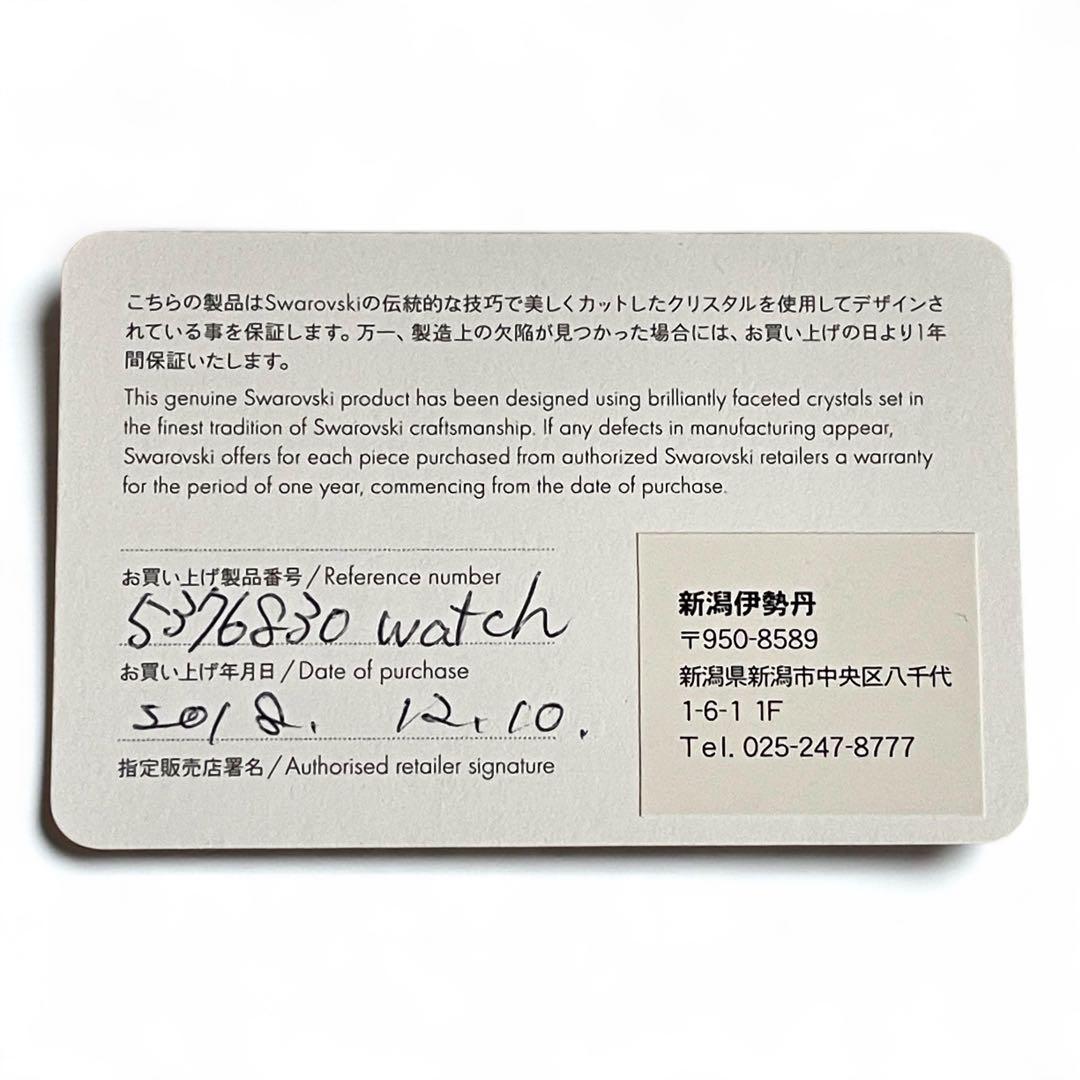 こちらの製品はSwarovskiの伝統的な技巧で美しくカットしたクリスタルを使用してデザインさ
れている事を保証します。万一、製造上の欠陥が見つかった場合には、お買い上げの日より1年
間保証いたします。
This genuine Swarovski product has been designed using brilliantly faceted crystals set in
the finest tradition of Swarovski craftsmanship. If any defects in manufacturing appear,
Swarovski offers for each piece purchased from authorized Swarovski retailers a warranty
for the period of one year, commencing from the date of purchase.
お買い上げ製品番号/Reference number
5376830 watch
お買い上げ年月日/Date of purchase
2018. 12. 10.
指定販売店署名/Authorised retailer signature
新潟伊勢丹
〒950-8589
新潟県新潟市中央区八千代
1-6-1 1F
Tel. 025-247-8777